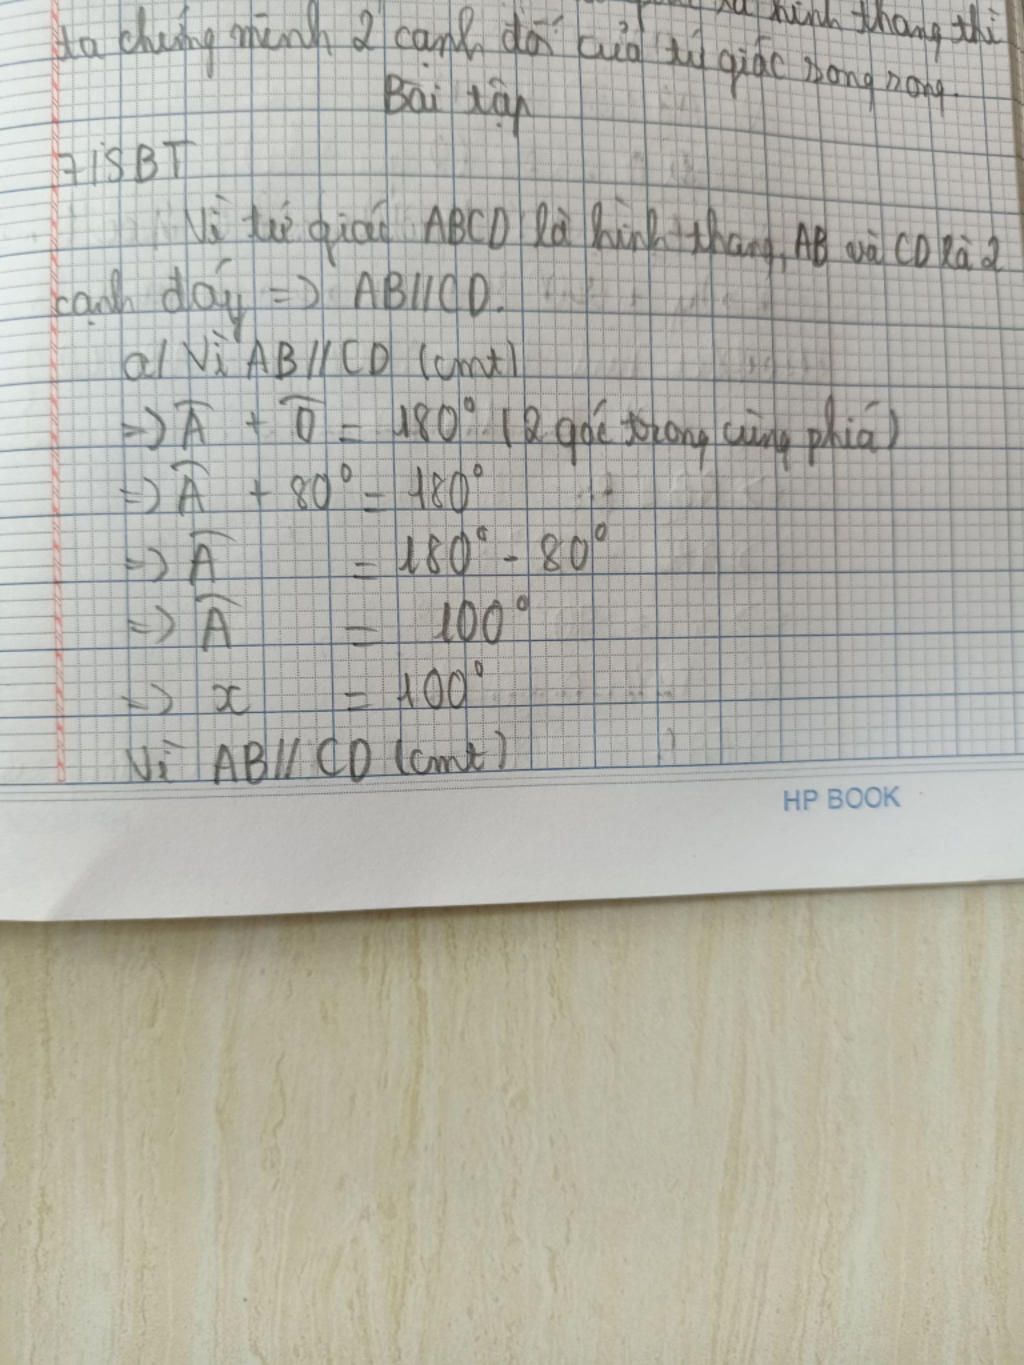 là hình thang thì
ta chứng minh 2 cạnh đối của tứ giác song song.
Bài tập
7/SBT
Vì tứ giác ABCD là hình thang, AB và CD là 2
cạnh đáy => AB//CD.
a/ Vì AB//CD (cmt)
=> Â + D̂ = 180° (2 góc trong cùng phía)
=> Â + 80° = 180°
=> Â = 180° - 80°
=> Â = 100°
=> x = 100°
Vì AB//CD (cmt)
HP BOOK